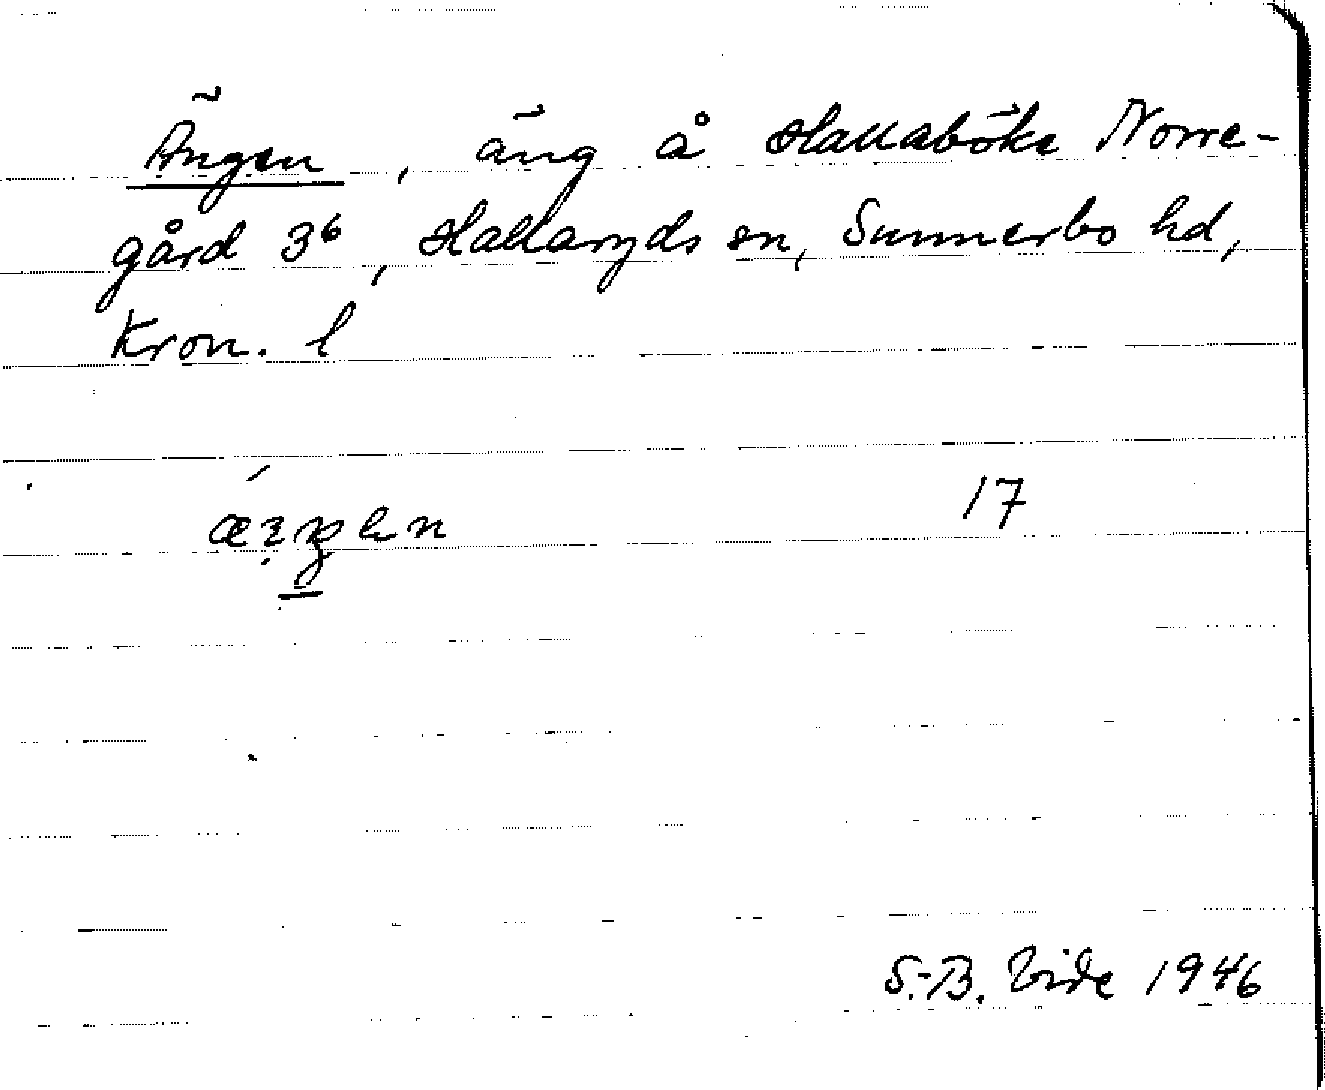 Ängen, äng å Hallaböke Norre-
gård 3⁶, Hallaryds sn, Sunnerbo hd,
Kron. l
17
S.-B. Vide 1946